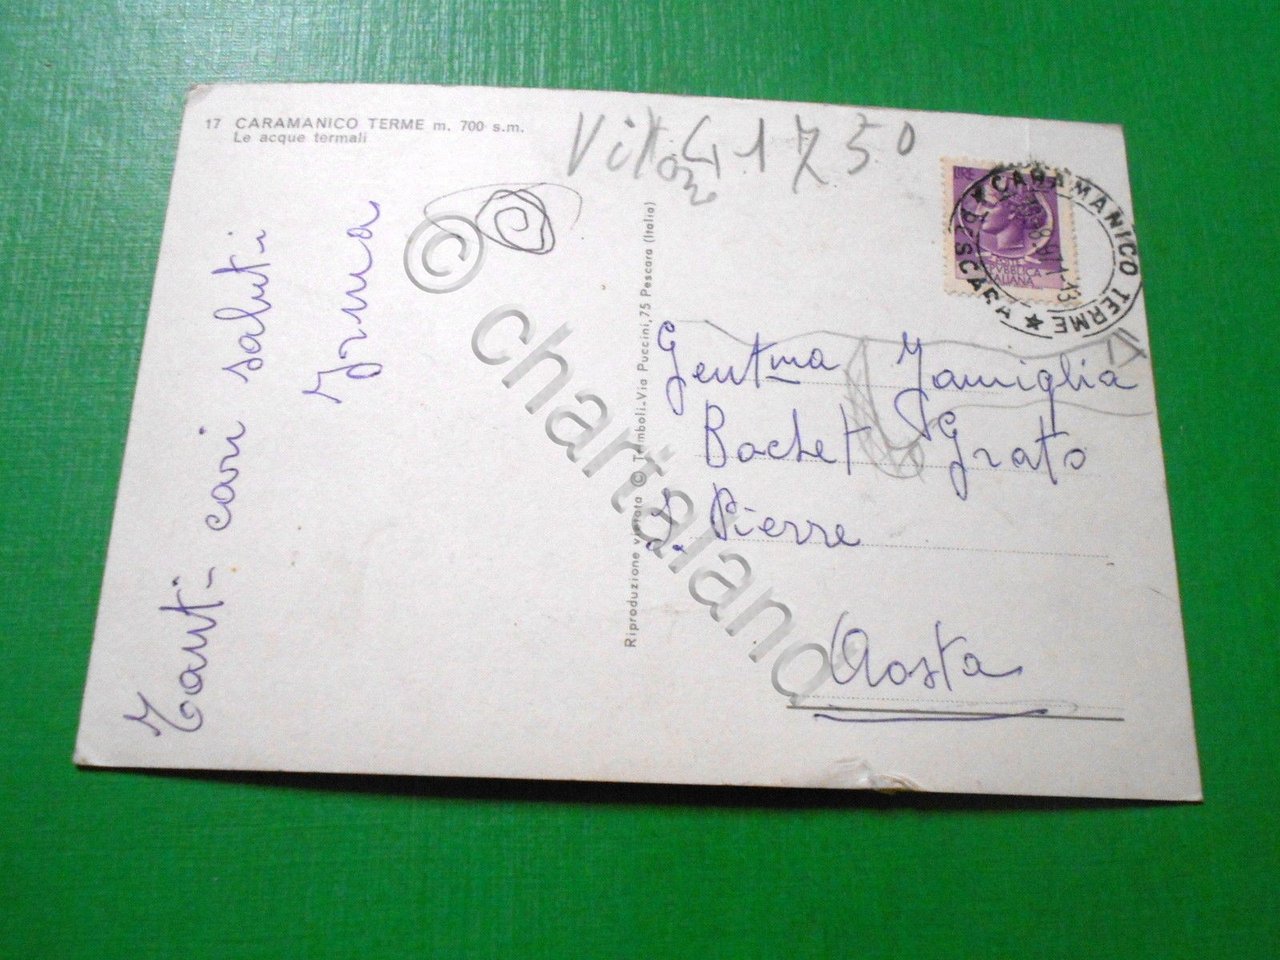 17 CARAMANICO TERME m. 700 s.m.
Le acque termali
1750
Tanti cari saluti
Irma
Riproduzione vietata © Tamboli-Via Puccini, 75 Pescara (Italia)
CARAMANICO TERME ★ PESCARA ★
POSTE
REPUBBLICA
ITALIANA
Gent.ma Famiglia
Bochet Grato
S. Pierre
Aosta
© chartaland